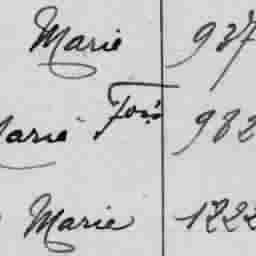 Marie 937
Marie Fois 982
Marie 1222